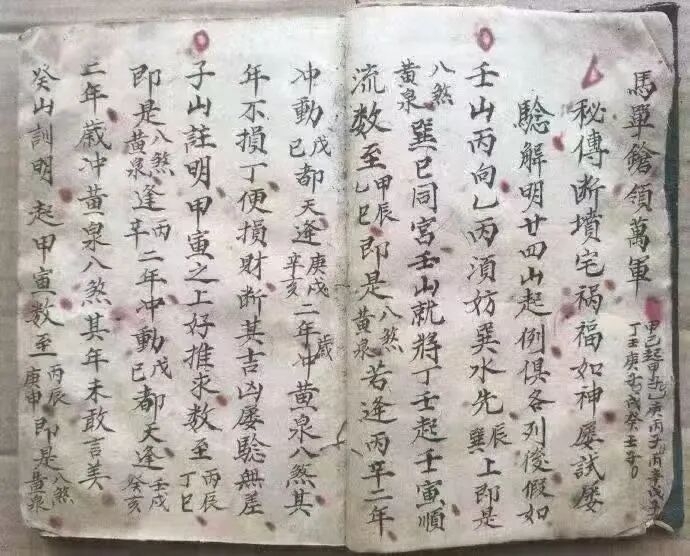 馬單鎗領萬軍
甲己起甲子乙庚丙子丙辛戊子
丁壬庚子戊癸壬子
秘傳断墳宅禍福如神屡試屡
騐解明廿四山起例俱各列後假如
壬山丙向乙丙湏妨巽水先辰巽上即是
八煞黄泉巽巳同宮壬山就將丁壬起壬寅順
流数至甲辰乙巳即是八煞黄泉若逢丙辛二年
冲動戊己都天逢庚戌辛亥二年歲冲黄泉八煞其
年不損丁便損财断其吉凶屡騐無差
子山註明甲寅之上好推求数至丙辰丁巳
即是八煞黄泉逢丙辛二年冲動戊己都天逢壬戌癸亥
二年歲冲黄泉八煞其年未敢吉美
癸山訓明起甲寅数至丙辰庚申即是八煞黄泉